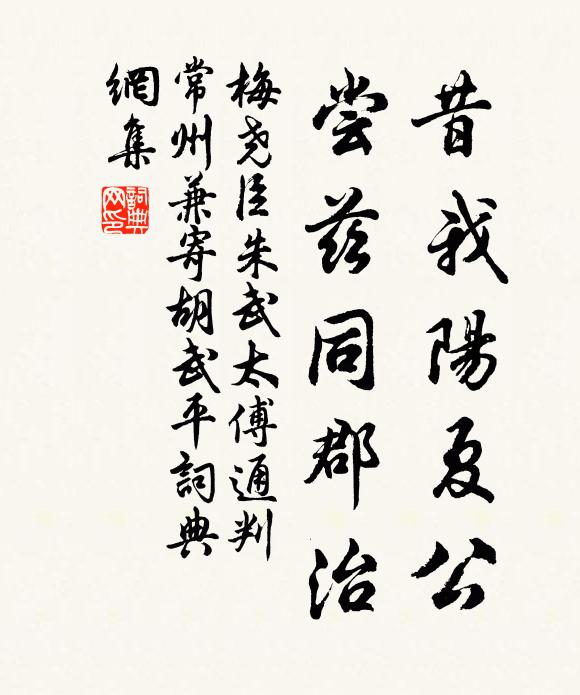 昔我陽夏公
嘗茲同郡治
梅堯臣朱武太傅通判
常州兼寄胡武平詞典
網集
詞典網印